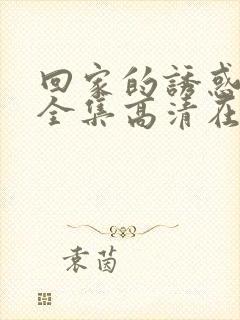 回家的誘惑
全集高清在
袁茵